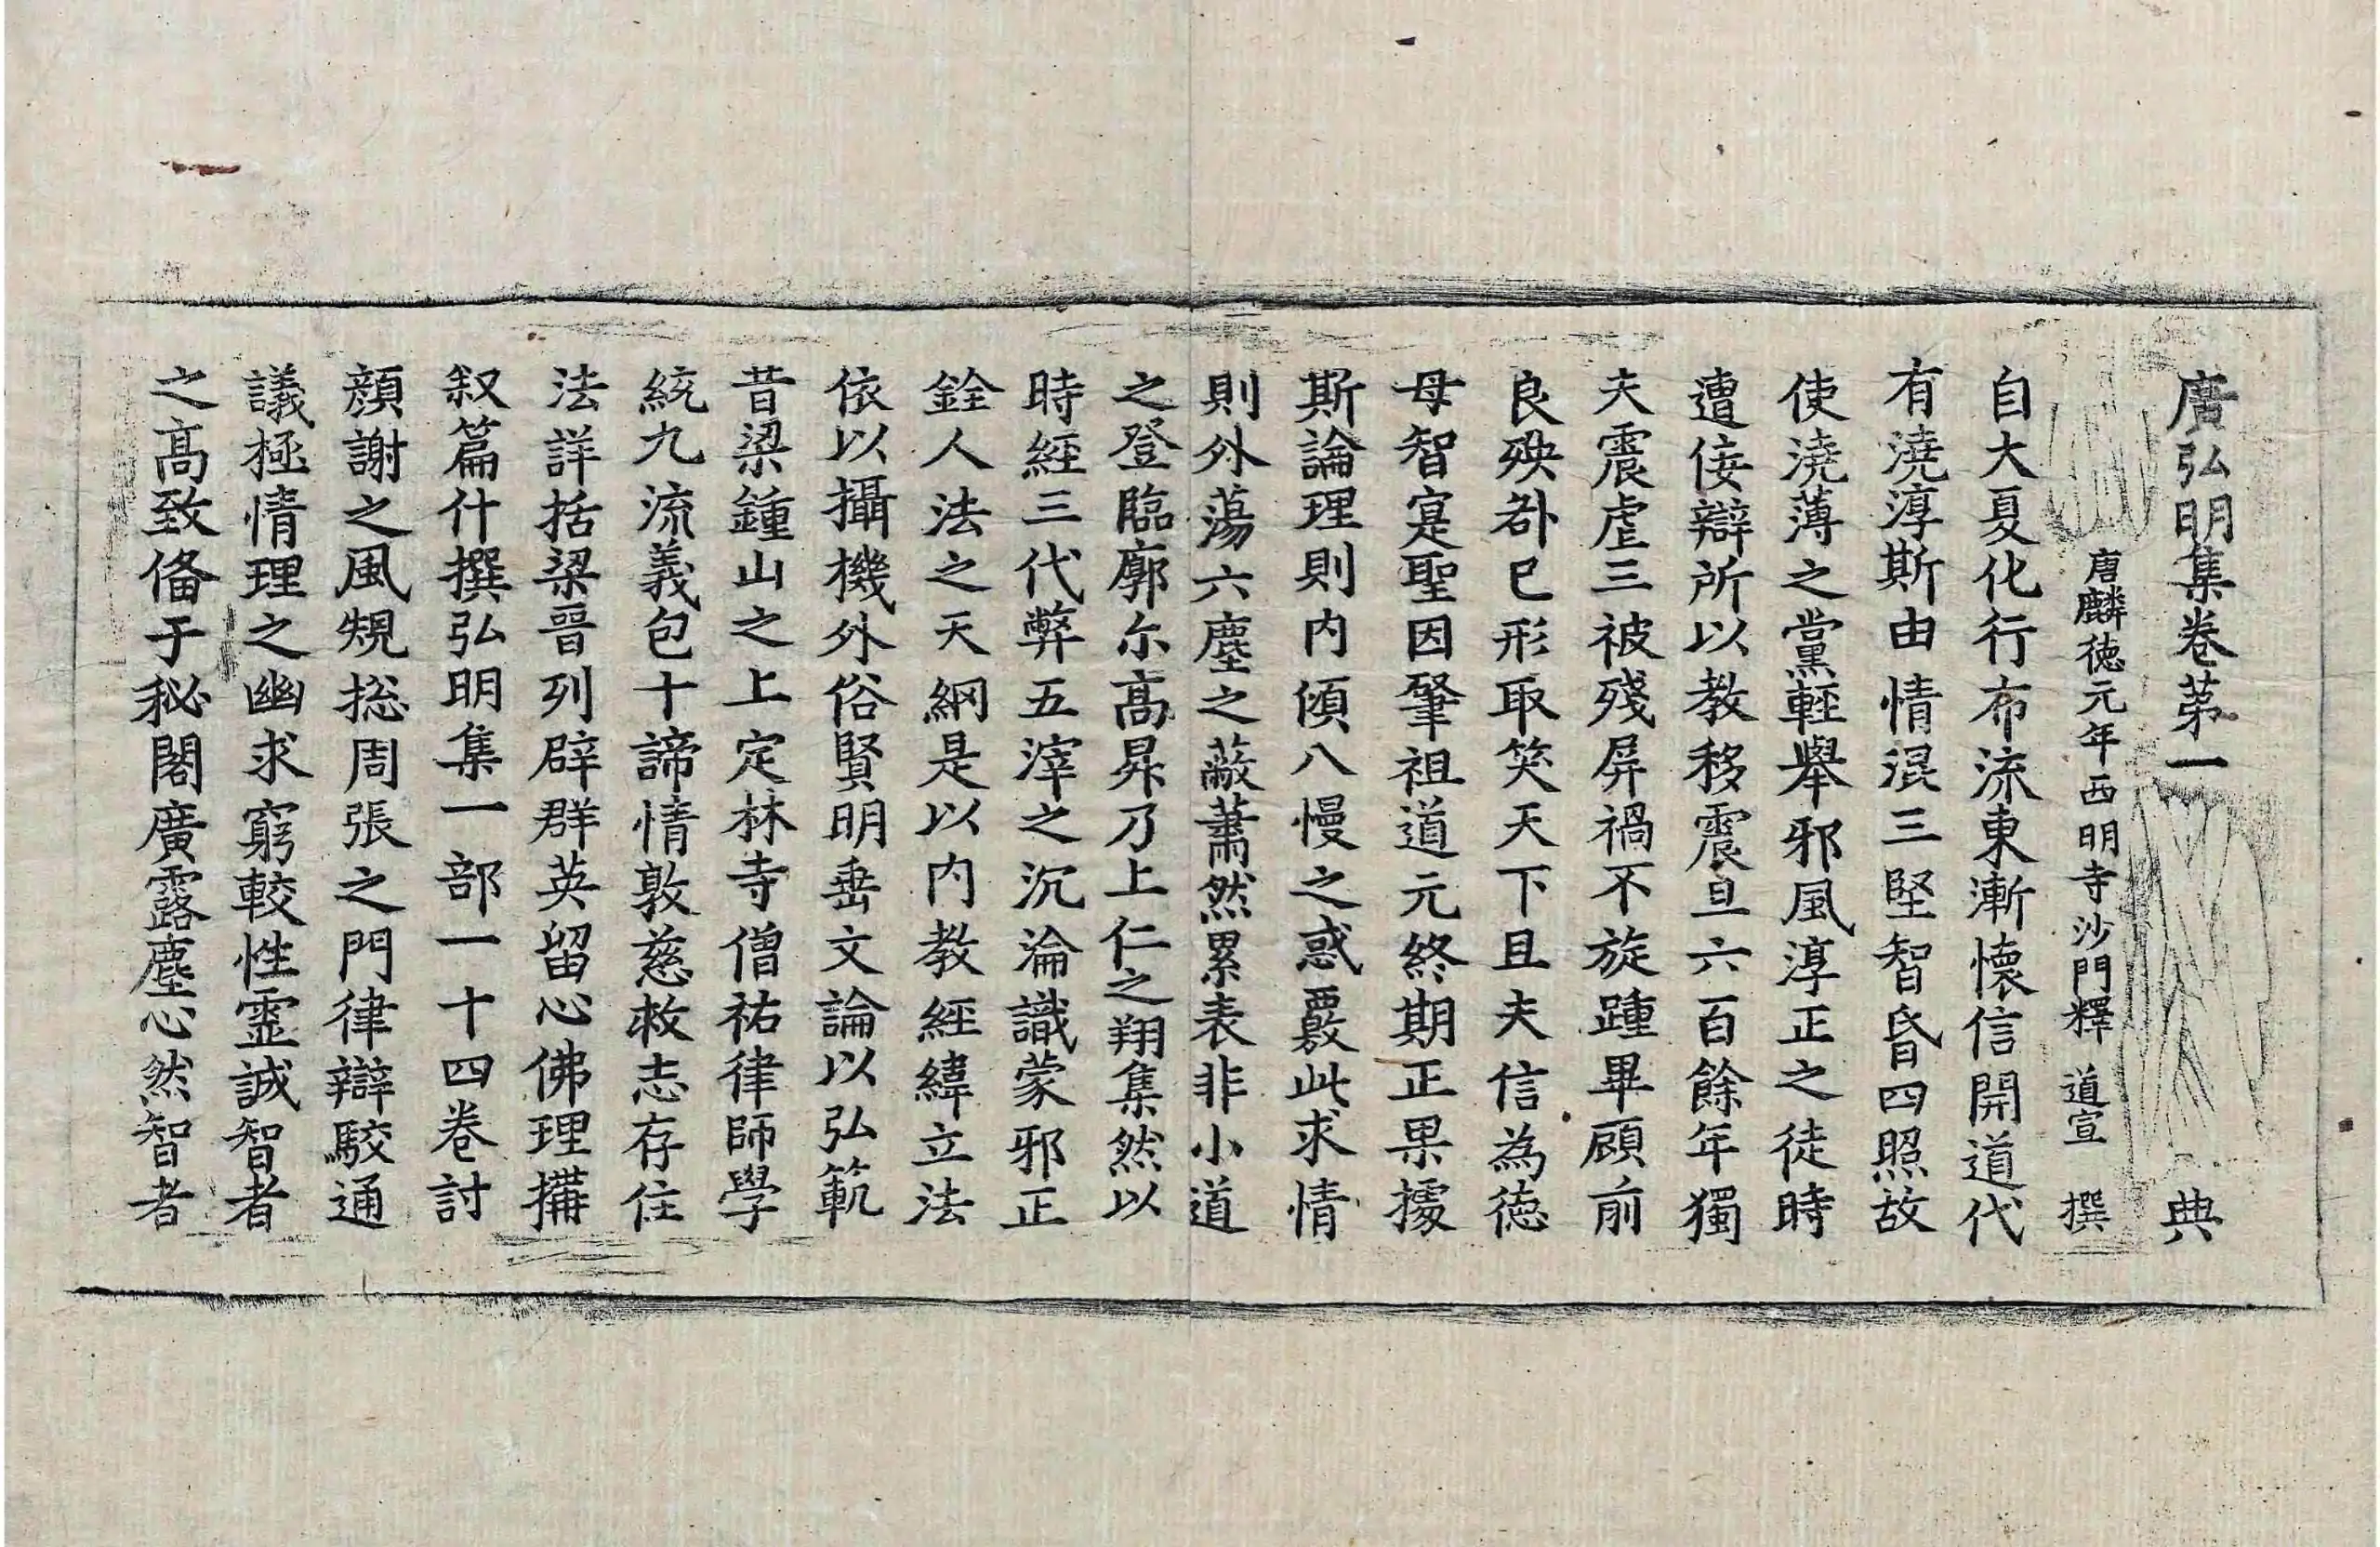 廣弘明集卷苐一　典
唐麟徳元年西明寺沙門釋　道宣　撰
自大夏化行布流東漸懷信開道代
有澆淳斯由情混三堅智昏四照故
使澆薄之黨輕舉邪風淳正之徒時
遭佞辯所以教移震旦六百餘年獨
夫震虐三被殘屏禍不旋踵畢顧前
良殃咎已形取笑天下且夫信為徳
母智寔聖因肇祖道元終期正果據
斯論理則内傾八慢之惑覈此求情
則外蕩六塵之蔽蕭然累表非小道
之登臨廓尓髙昇乃上仁之翔集然以
時經三代弊五滓之沉淪識蒙邪正
銓人法之天綱是以内教經緯立法
依以攝機外俗賢明垂文論以弘範
昔梁鍾山之上定林寺僧祐律師學
統九流義包十諦情敦慈救志存住
法詳括梁晉列辟群英留心佛理搆
叙篇什撰弘明集一部一十四卷討
顔謝之風䂓捴周張之門律辯駮通
議極情理之幽求窮較性靈誠智者
之髙致俻于秘閣廣露塵心然智者